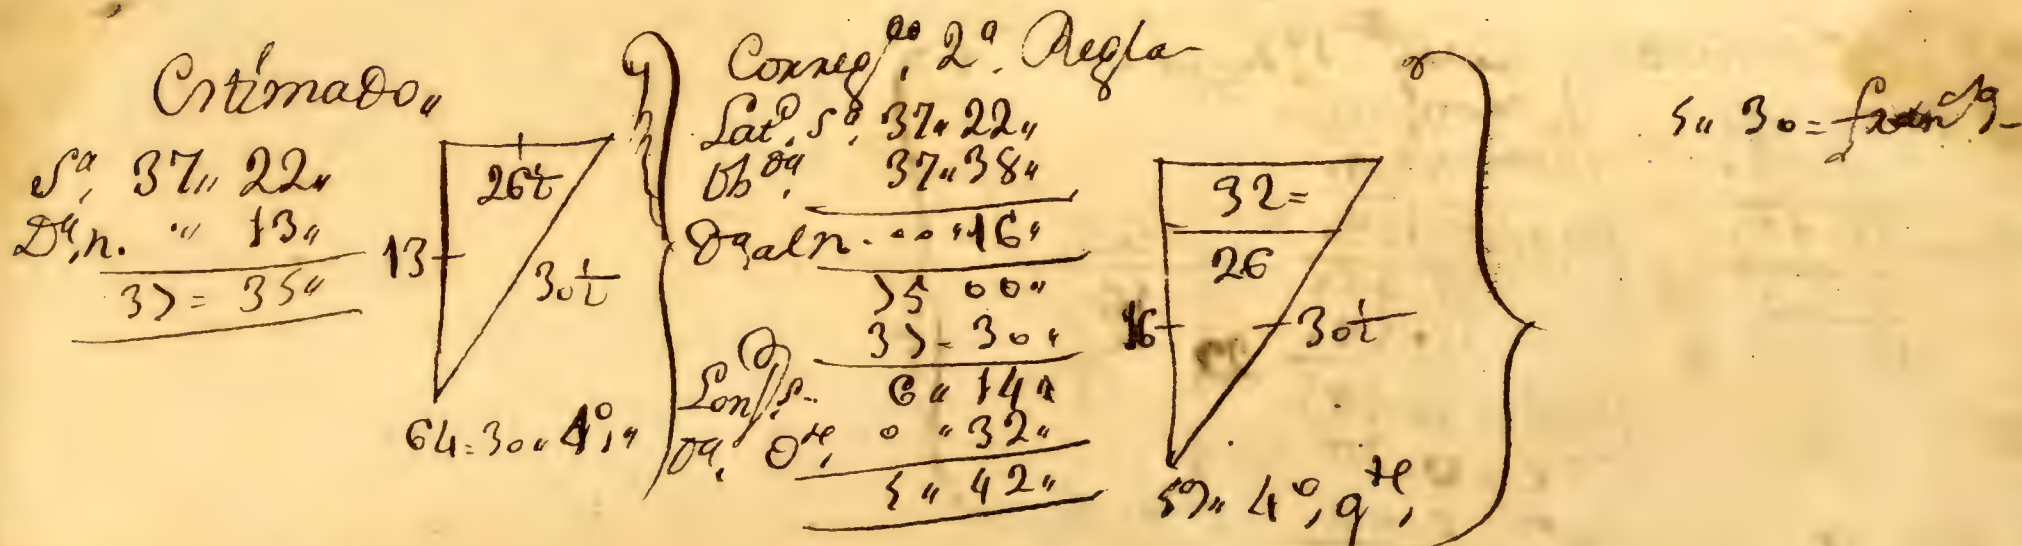 Estimado„
Sª, 37„ 22„
Dª, n. „ 13„
37= 35„
26½
13
30½
64=30„ 4º,„
Correg.ªº, 2ª. Regla
Latᵈ, Sª, 37„ 22„
Obᵈª. 37„38„
Dª al n. 00„16„
75 00„
37=30„
S. 6„ 14„
Dª, Oᵗᵉ, 0„32„
5„ 42„
32=
26
16
30½
59„ 4º, qᵗᵉ,
5„ 30=